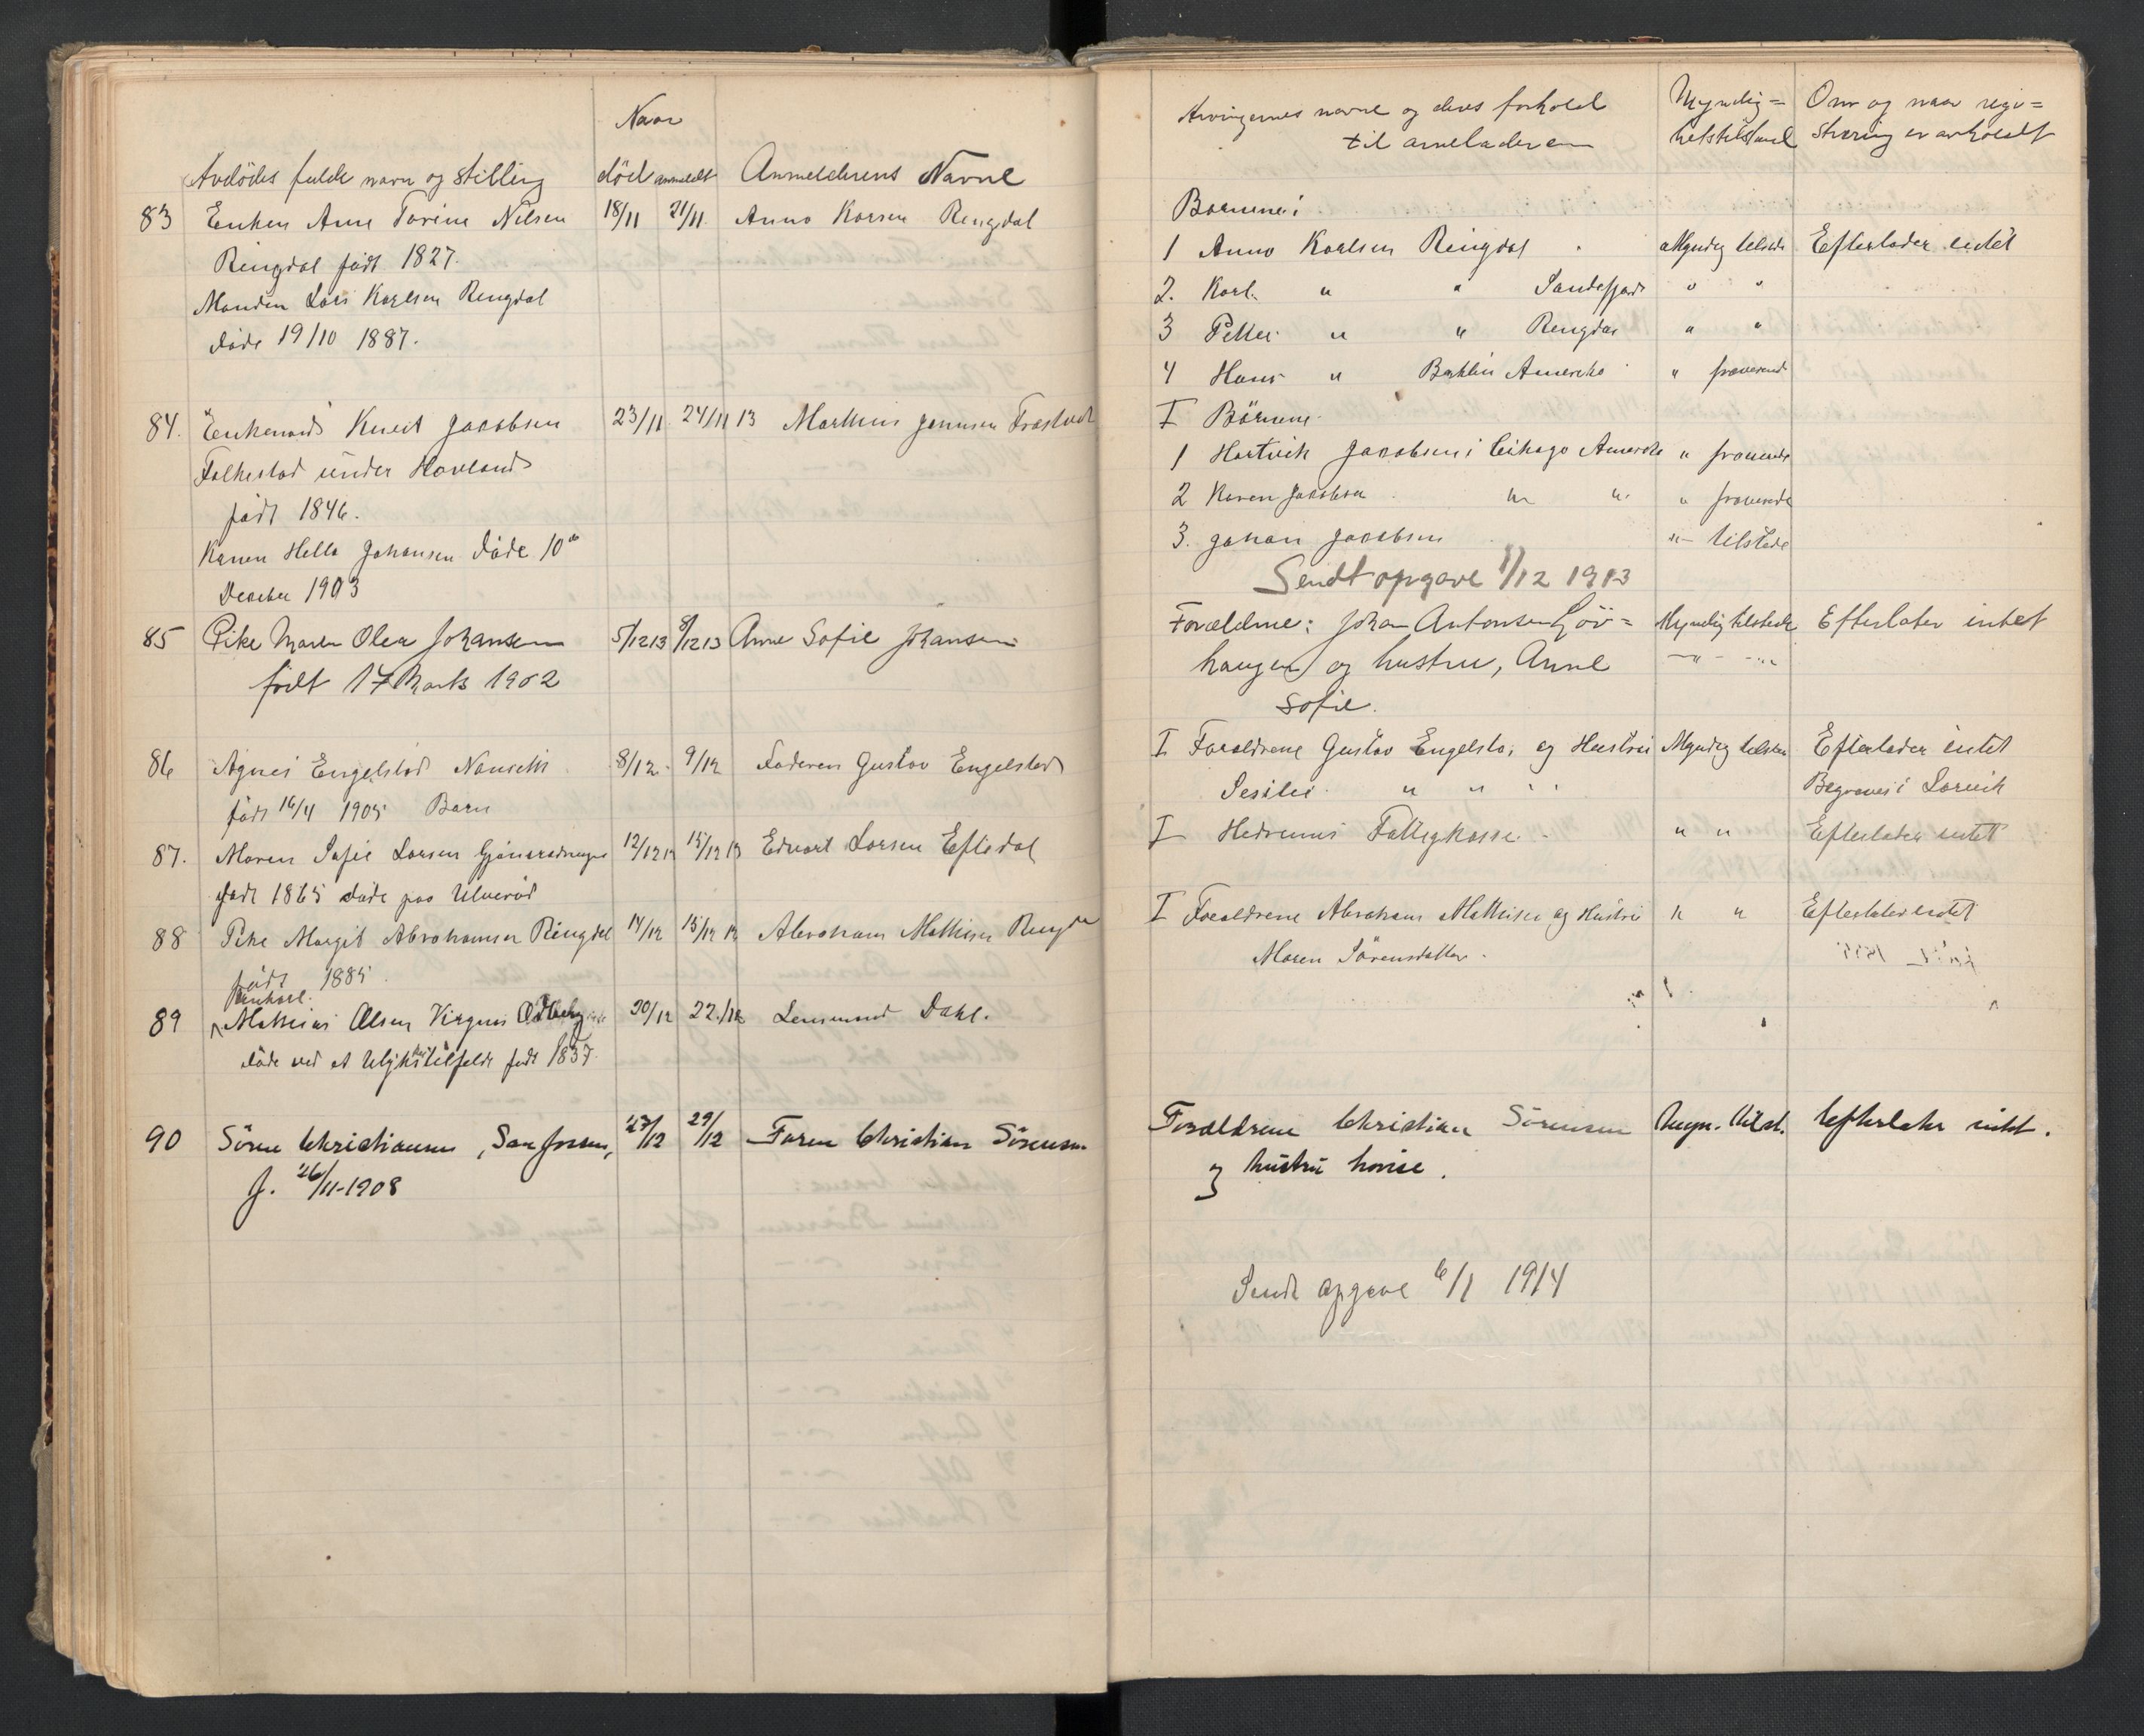 Naar
Avdödes fulde navn og stilling död anmeldt Anmelderens Navne
83 Enken Anne Torine Nilsen 18/11 21/11 Anno Karsen Ringdal
Ringdal født 1827.
Manden Lars Karlsen Ringdal
døde 19/10 1887.
84. Enkemand Knut Jacobsen 23/11 24/11 13 Mathius Jennsen
Falkestad under Hovland
født 1846.
Karen Hella Johansen døde 10de
December 1903
85 Pike Maren Olea Johansen 5/12 13 8/12 13 Anne Sofie Johansen
födt 17 Marts 1902
86 Agnes Engelstad Nanseth 8/12 9/12 Faderen Gustav Engelstad
født 16/4 1905 Barn
87. Maren Sofie Larsen 12/12 13 15/12 13 Edvart Larsen Eftedal
født 1865 døde paa Ulverød
88 Pike Margit Abrahamsen Ringdal 14/12 15/12 13 Abraham Mathisen Ringdal
født 1885.
Enkarl.
89 Mathias Olsen 20/12 22/12 Lensmand Dahl.
døde ved et Ulykkestilfelde født 1837.
90 Sören Christiansen, 27/12 29/12 Faren Christian Sörensen
f. 26/11-1908
Arvingernes navne og deres forhold til arveladeren
Myndig= hetstilstand
Om og naar regi= strering er avholdt
Børnene:
1 Anno Karlsen Ringdal Myndig tilstede Efterlader intet
2. Karl " " Sandefjord " "
3 Petter " " Ringdal " "
4 Hans " Amerika " fraværende
I Börnene
1 Hartvik Jacobsen i Cikago Amerika " fraværende
2 Karen Jacobsen " " " fraværende
3. Johan Jacobsen " tilstede
Sendt opgave 1/12 1913
Forældrene: Johan Antonsen Myndig tilstede Efterlater intet
haugen og hustru, Anne — " — "
Sofie.
I Forældrene Gustav Engelstad og Hustru Myndig tilstede Efterlader intet
Sesilie " " " Begraves i Larvik
I Hedrums Fattigkasse. " " Efterlader intet
I Forældrene Abraham Mathisen og Hustru " " Efterlader intet
Maren Sörensdatter.
Forældrene Christian Sörensen Myn. tilst. Efterlater intet.
og hustru
Sendt opgave 6/1 1914